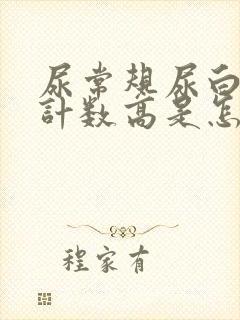 尿常规尿白
計数高是怎
程家有